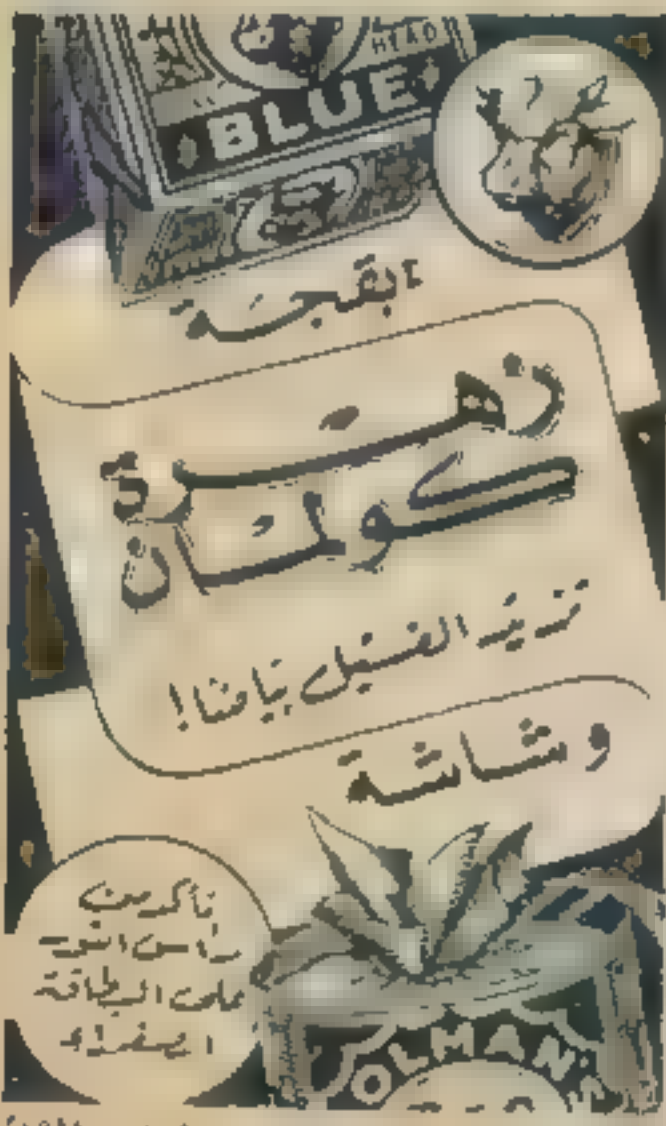 HEAD
BLUE
بقجة
زهرة
كولمان
تزيد الغسيل بياضا!
وشاشة
تأكد من
رأس الثور
على البطاقة
الصفراء
OLMAN'